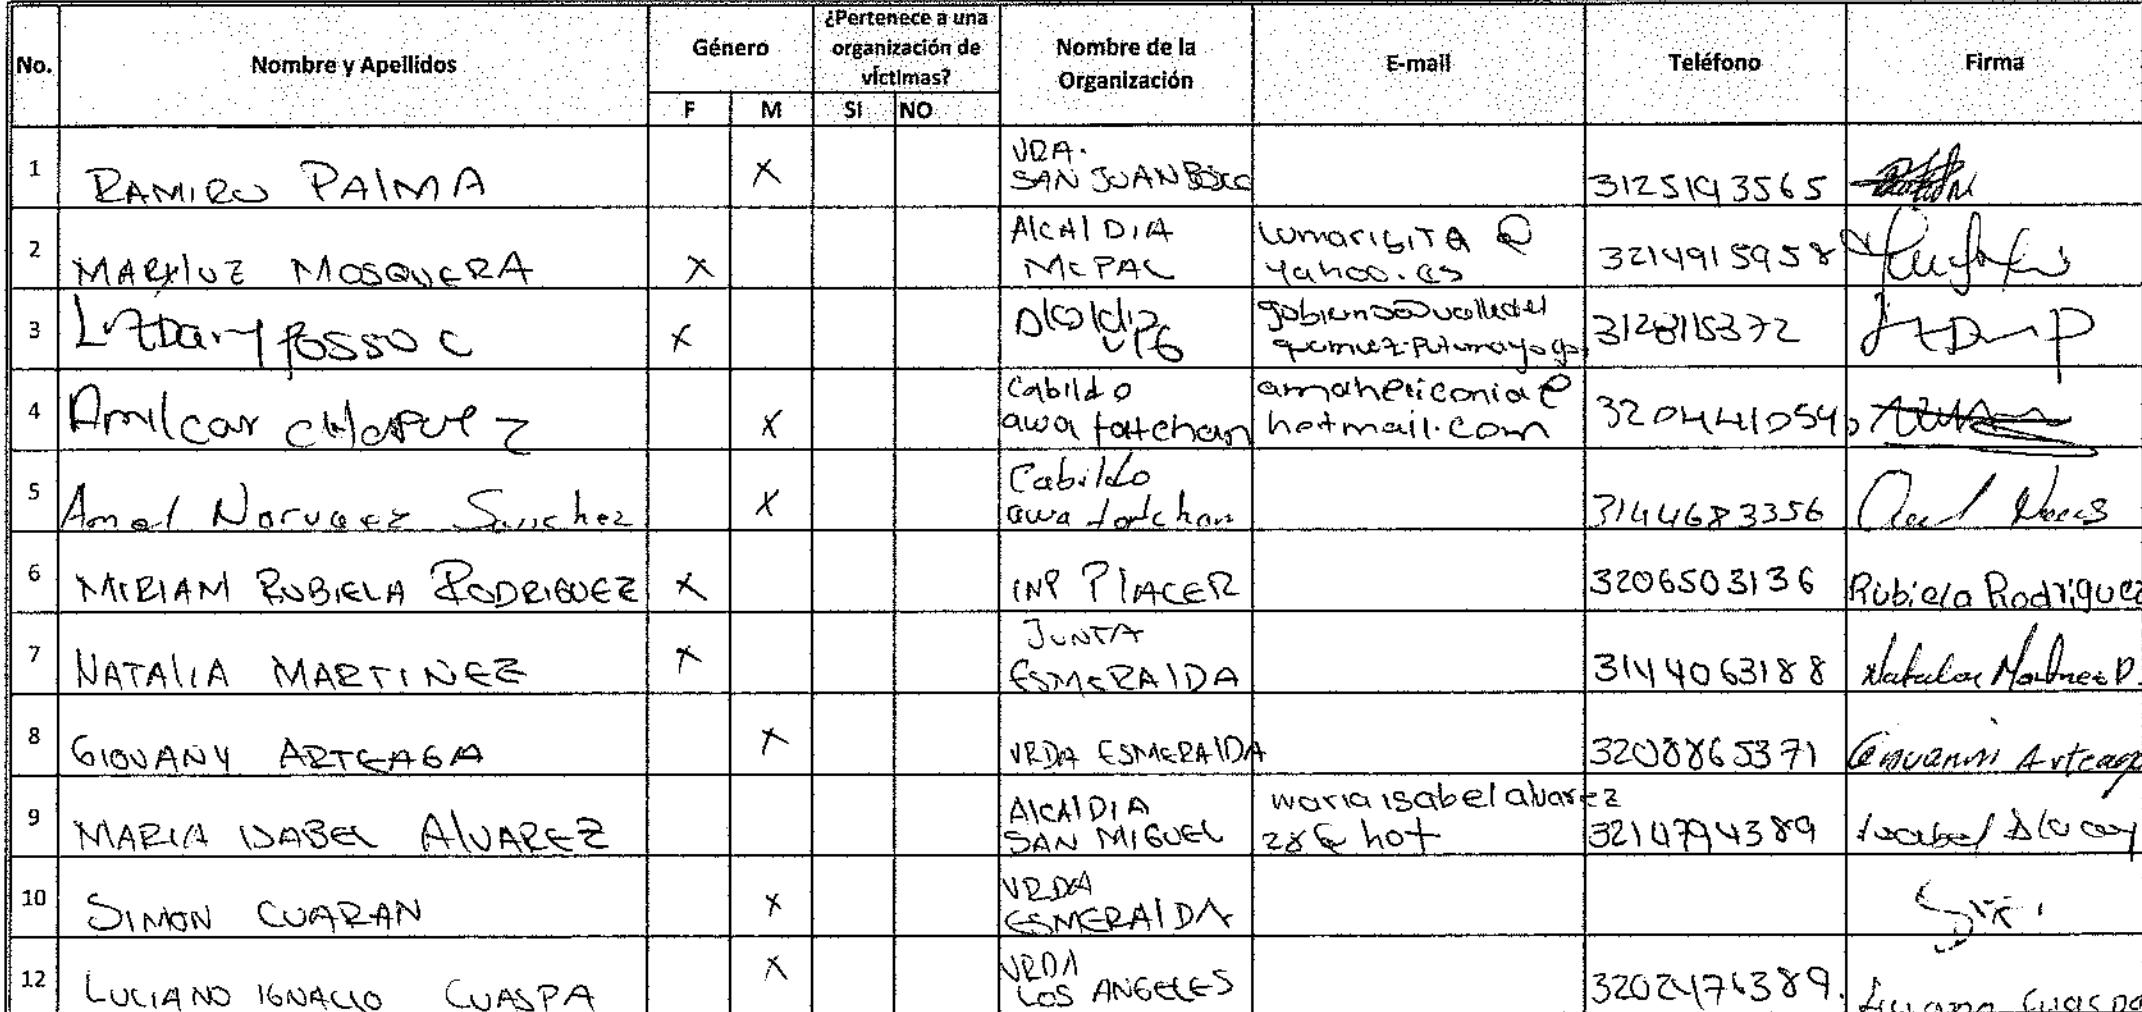 No. Nombre y Apellidos Género ¿Pertenece a una organización de víctimas? Nombre de la Organización E-mail Teléfono Firma
F M SI NO
1 RAMIRO PALMA X VDA. SAN JUAN BOSCO 3125193565
2 MARYLUZ MOSQUERA X ALCALDIA MCPAL lumarisita @ yahoo.es 3214915958
3 LuzDary POSSO C X Alcaldia VPG 3128115372
4 Amilcar CHAPUEZ X Cabildo awa tatchan amaheliconia@ hotmail.com 320441054
5 Sanchez X Cabildo awa tatchan 3144683356
6 MIRIAM RUBIELA RODRIGUEZ X INP PLACER 3206503136 Rubiela Rodriguez
7 NATALIA MARTINEZ X JUNTA ESMERALDA 3144063188 Natalia Martinez P.
8 GIOVANY ARTEAGA X VRDA ESMERALDA 3208865371 Arteaga
9 MARIA ISABEL ALVAREZ X ALCALDIA SAN MIGUEL maria isabel alvarez 28@ hot 3214794389 Isabel
10 SIMON CUARAN X VRDA ESMERALDA
12 LUCIANO IGNACIO CUASPA X VRDA LOS ANGELES Cuaspa